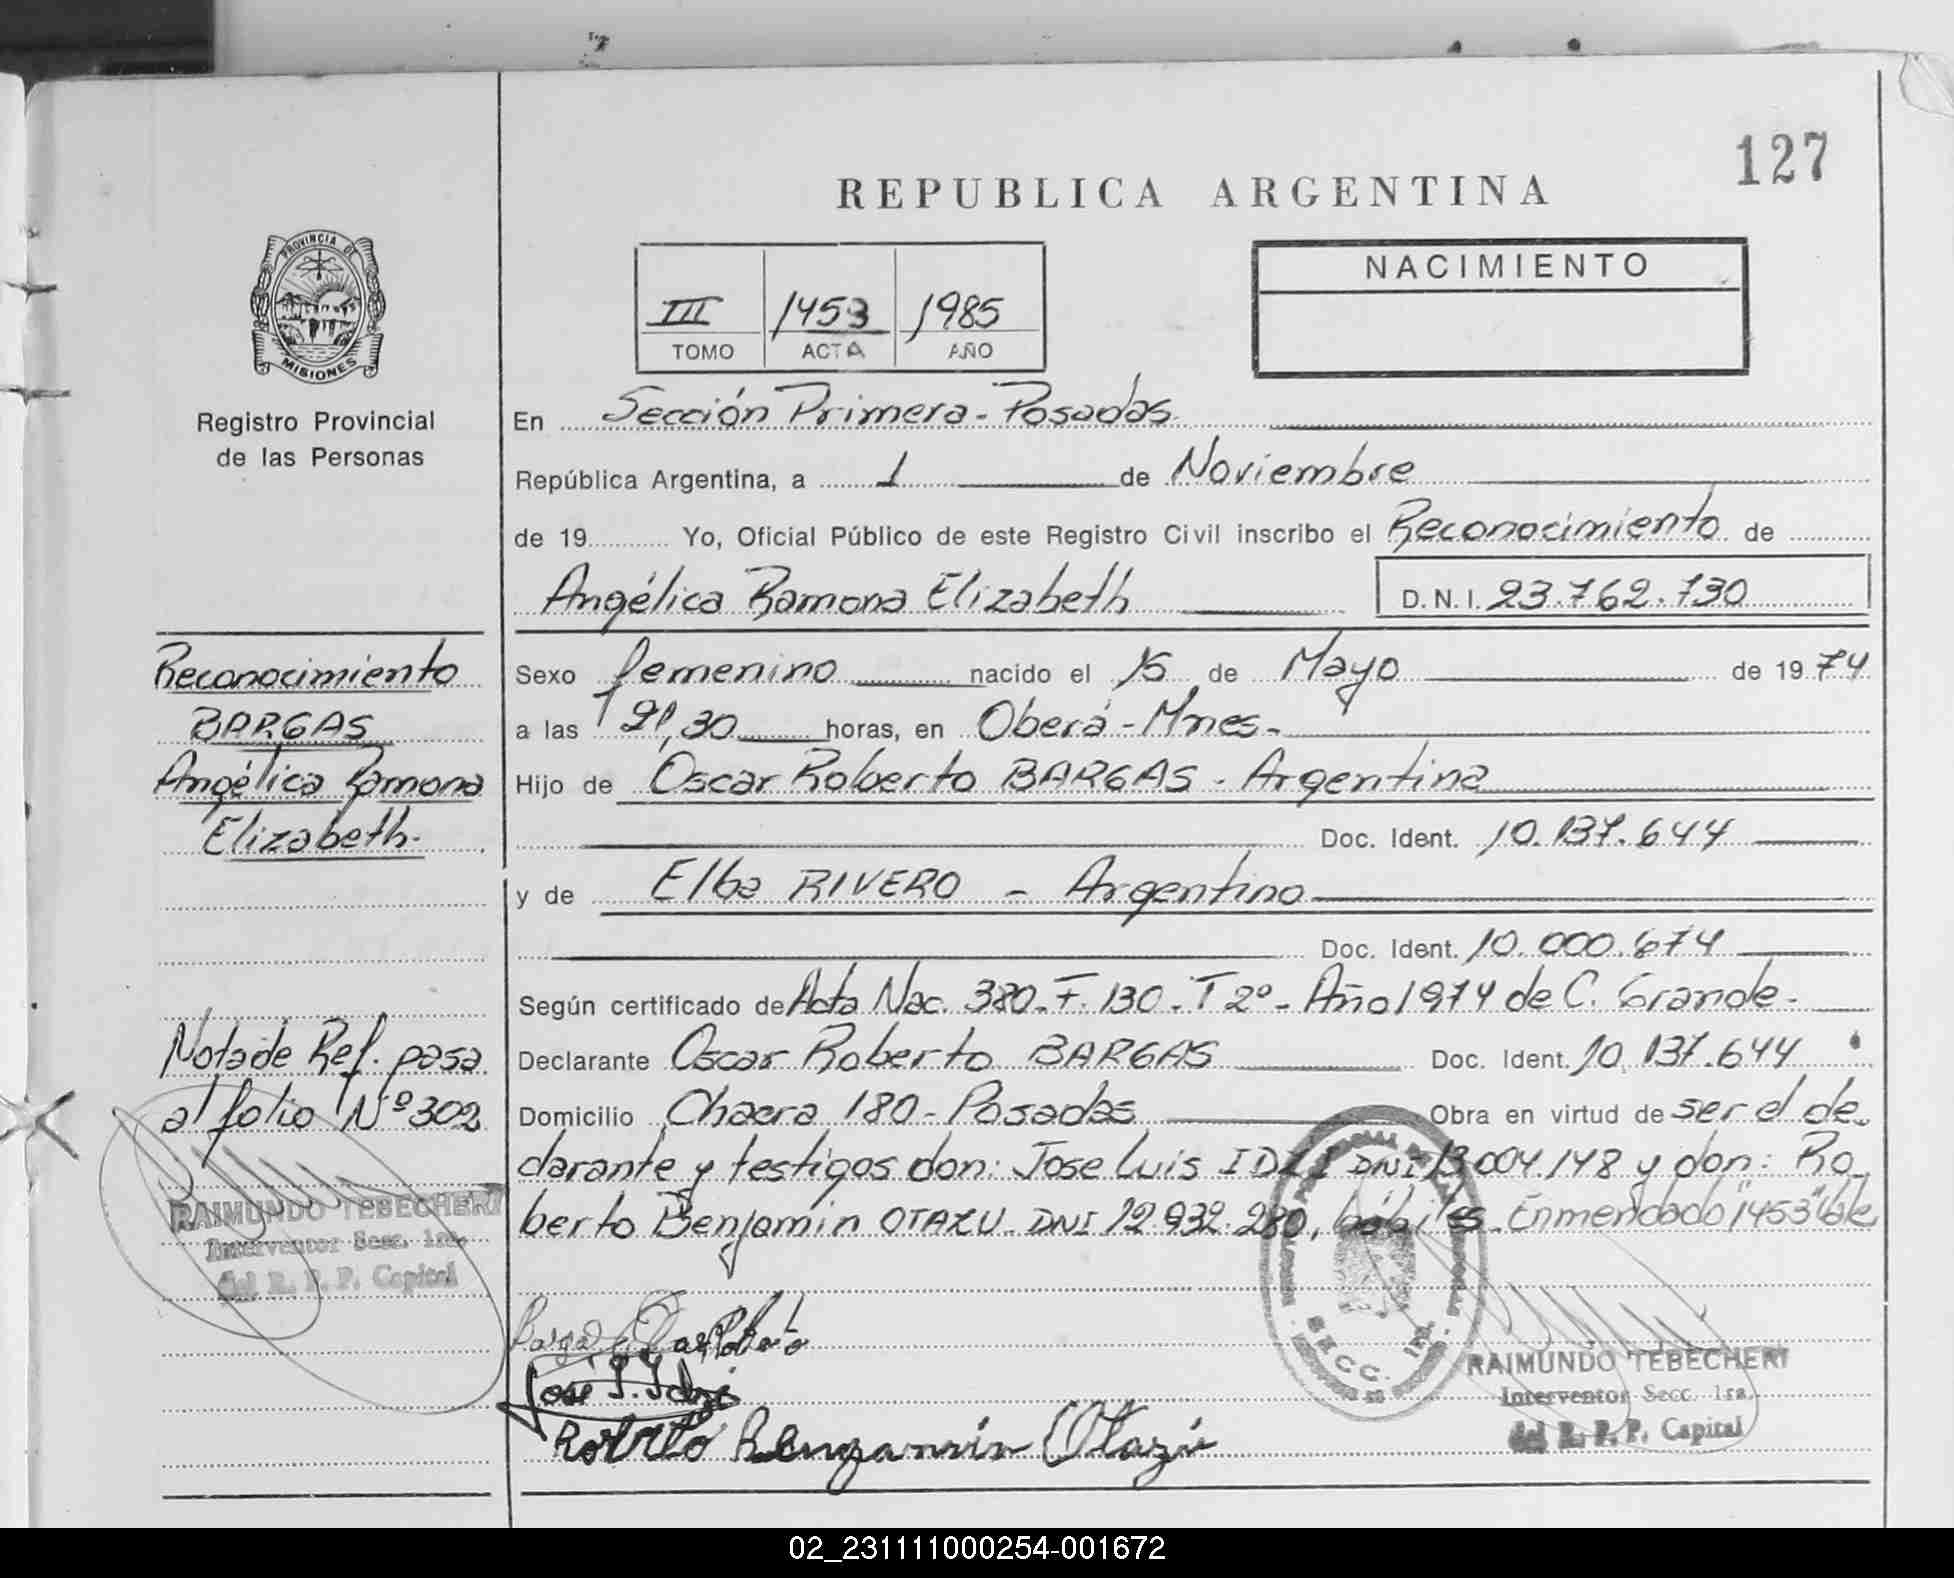 127
REPUBLICA ARGENTINA
PROVINCIA DE
MISIONES
Registro Provincial
de las Personas
III 1453 1985
TOMO ACTA AÑO
NACIMIENTO
En Sección Primera - Posadas
República Argentina, a 1 de Noviembre
de 19 Yo, Oficial Público de este Registro Civil inscribo el Reconocimiento de
Angélica Ramona Elizabeth D.N.I. 23.762.730
Reconocimiento
BARGAS
Angélica Ramona
Elizabeth.
Sexo femenino nacido el 15 de Mayo de 1974
a las 21,30 horas, en Oberá - Mnes.
Hijo de Oscar Roberto BARGAS - Argentina
Doc. Ident. 10.137.644
y de Elba RIVERO - Argentina
Doc. Ident. 10.000.674
Según certificado de Acta Nac. 380 - F. 130 - T 2º - Año 1974 de C. Grande.
Declarante Oscar Roberto BARGAS Doc. Ident. 10.137.644
Domicilio Chacra 180 - Posadas Obra en virtud de ser el de
clarante y testigos don: Jose Luis DNI 13.004.148 y don: Ro
berto Benjamín OTAZU DNI 12.932.280, hábiles. Enmendado "1453" Vale
Nota de Ref. pasa
al folio Nº 302
RAIMUNDO TEBECHERI
Interventor Secc. 1ra.
del R. P. P. Capital
SECC. 1RA.
Roberto Benjamin Otazú
RAIMUNDO TEBECHERI
Interventor Secc. 1ra.
del R. P. P. Capital
02_231111000254-001672